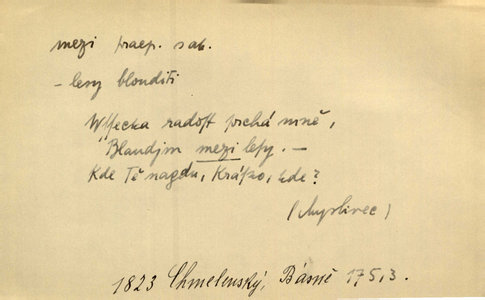 mezi praep. s ak.
– lesy blouditi
Wssecka radost prchá mně,
Blaudjm mezi lesy. –
Kde Tě nagdu, Krásko, kde?
(Myslivec)
1823 Chmelenský, Básně 175,3.